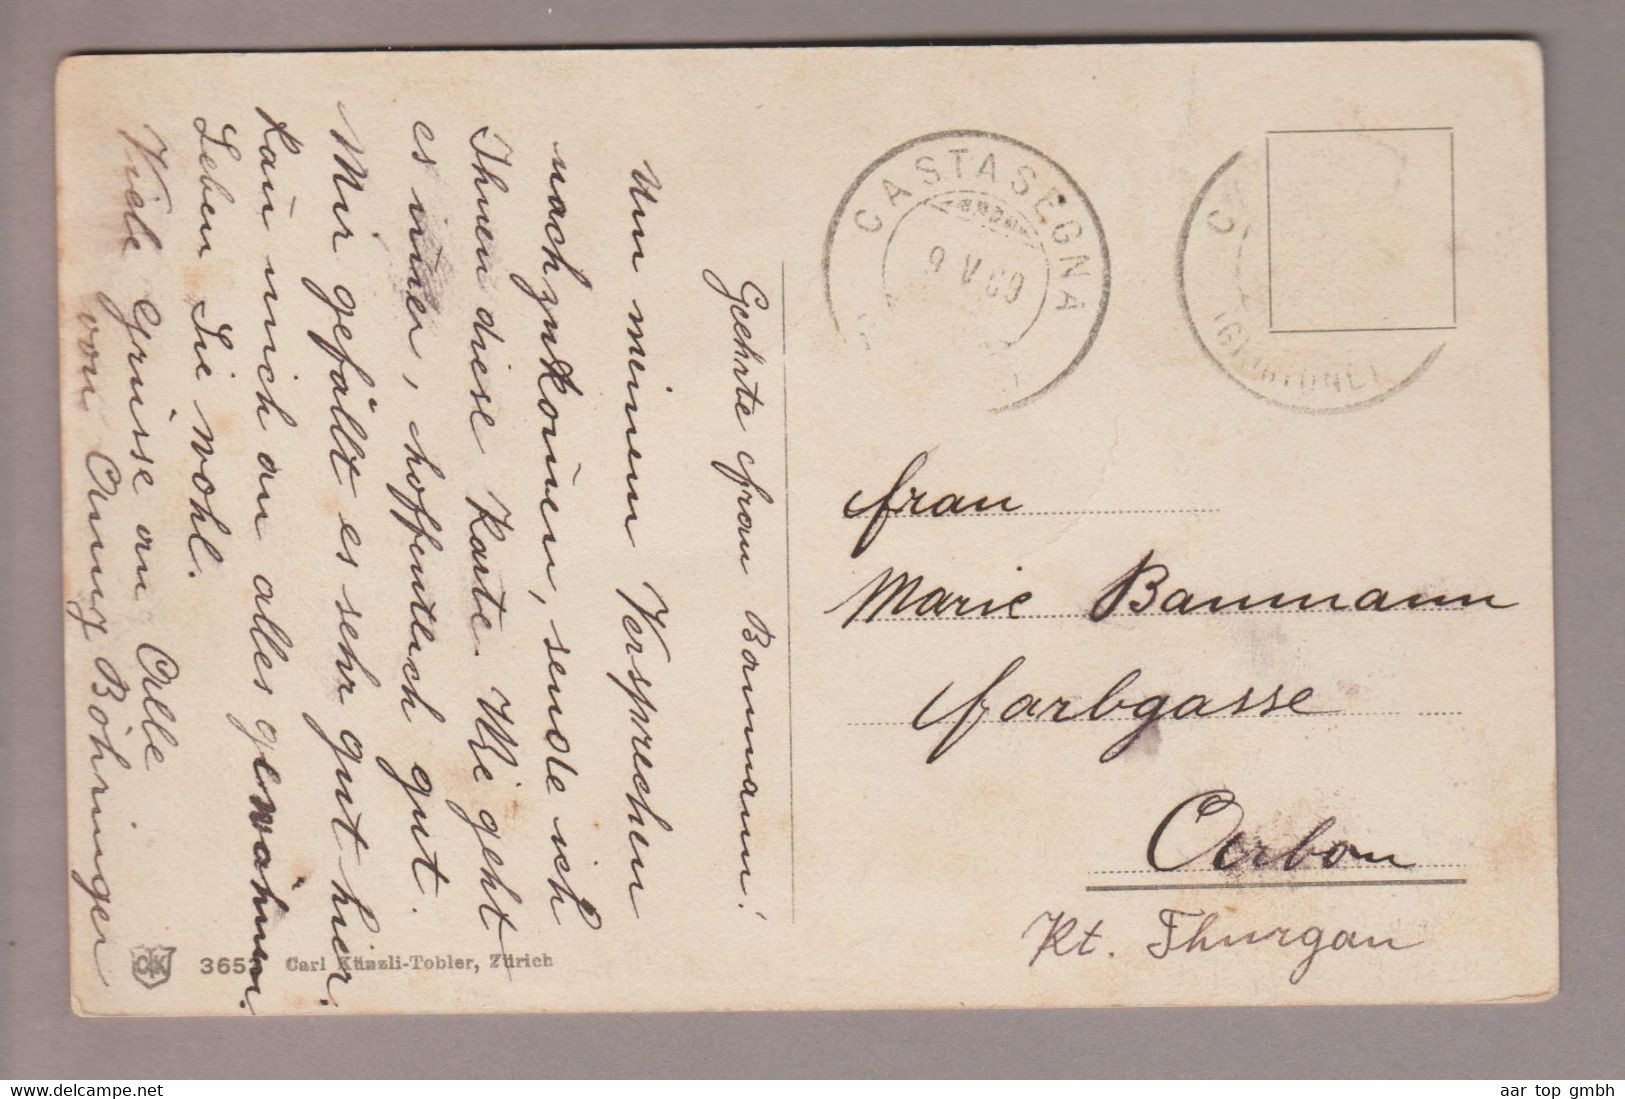 Geehrte Frau Baumann!
Um meinem Versprechen
nachzukom̄en, sende ich
Ihnen diese Karte. Wie geht
es im̄er, hoffentlich gut.
Mir gefällt es sehr gut hier.
Kan̄ mich an alles gewöhnen.
Leben Sie wohl.
Viele Grüsse an Alle
von Anny Böhringer
CASTASEGNA
9 V 09
C
Frau
Marie Baumann
Farbgasse
Arbon
Kt. Thurgau
CK 365 Carl Künzli-Tobler, Zürich
aar top gmbh